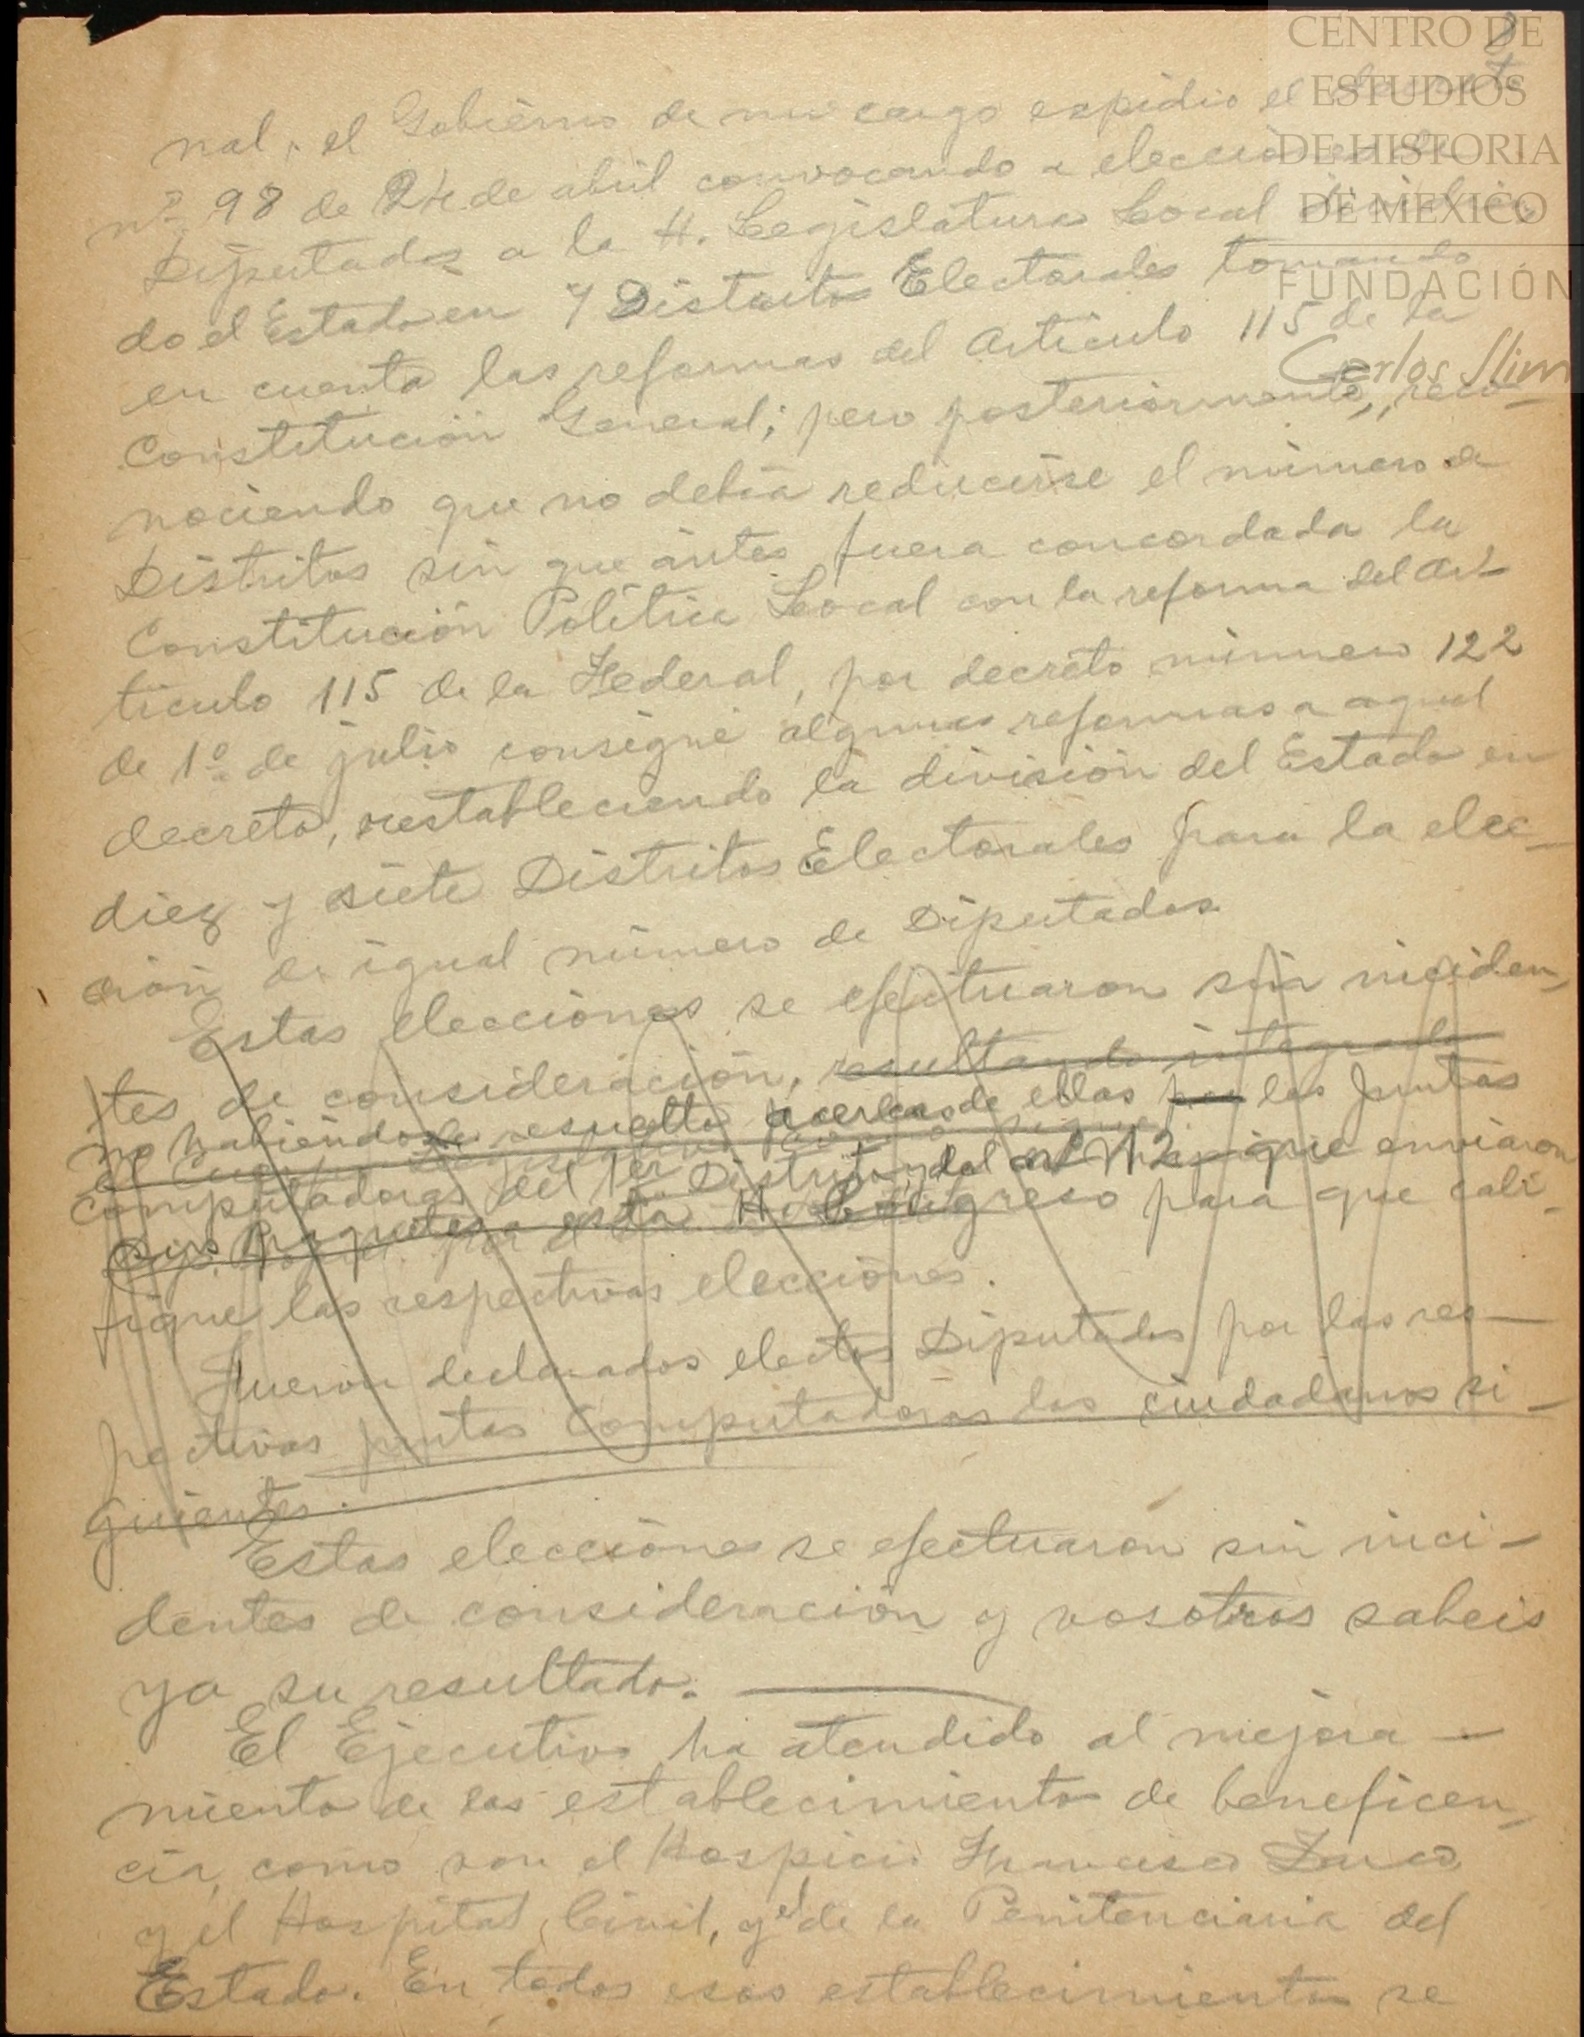 CENTRO DE
ESTUDIOS
DE HISTORIA
DE MEXICO
FUNDACIÓN
Carlos Slim
nal, el Gobierno de mi cargo expidió el decreto
nº 98 de 24 de abril convocando a elecciones de
Diputados a la H. Legislatura Local dividien
do el Estado en 7 Distritos Electorales tomando
en cuenta las reformas del Articulo 115 de la
Constitución General; pero posteriormente, reco-
nociendo que no debía reducirse el número de
Distritos sin que antes fuera concordada la
Constitución Política Local con la reforma del Ar-
ticulo 115 de la Federal, por decreto número 122
de 1º de julio consigné algunas reformas a aquel
decreto, restableciendo la división del Estado en
diez y siete Distritos Electorales para la elec-
ción de igual número de Diputados.
Estas elecciones se efectuaron sin inciden-
tes de consideración, resultando integrado
no habiéndose resuelto acerca de ellas por las Juntas
el Cuerpo Legislativo
Computadoras del 1er Distrito, y del 12 que enviaron
sus paquetes a esta H. Congreso para que cali-
fique las respectivas elecciones.
Fueron declarados electos Diputados por las res-
pectivas juntas Computadoras los ciudadanos si-
guientes.
Estas elecciones se efectuaron sin inci-
dentes de consideración y vosotros sabeis
ya su resultado.
El Ejecutivo ha atendido al mejora-
miento de los establecimientos de beneficen-
cia, como son el Hospicio Francisco
y el Hospital Civil, y el de la Penitenciaria del
Estado. En todos esos establecimientos se